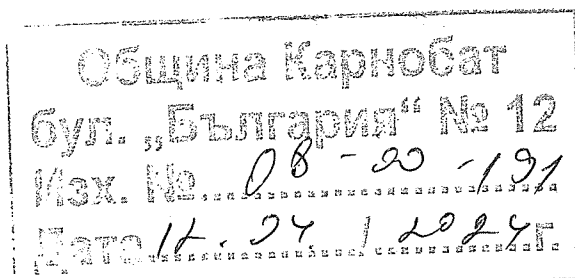 Община Карнобат
бул. „България“ № 12
Изх. №. 08-00-191
Дата 12.04 / 2024г.